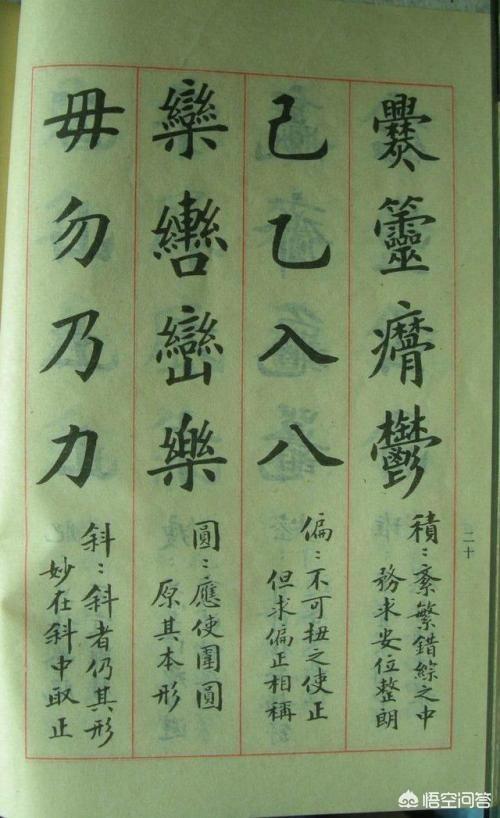 爨鬱
積：紊繁錯綜之中
務求安位整朗
己乙入八
偏：不可扭之使正
但求偏正相稱
欒轡巒樂
圓：應使圍圓
原其本形
毋勿乃力
斜：斜者仍其形
妙在斜中取正
二十
悟空问答